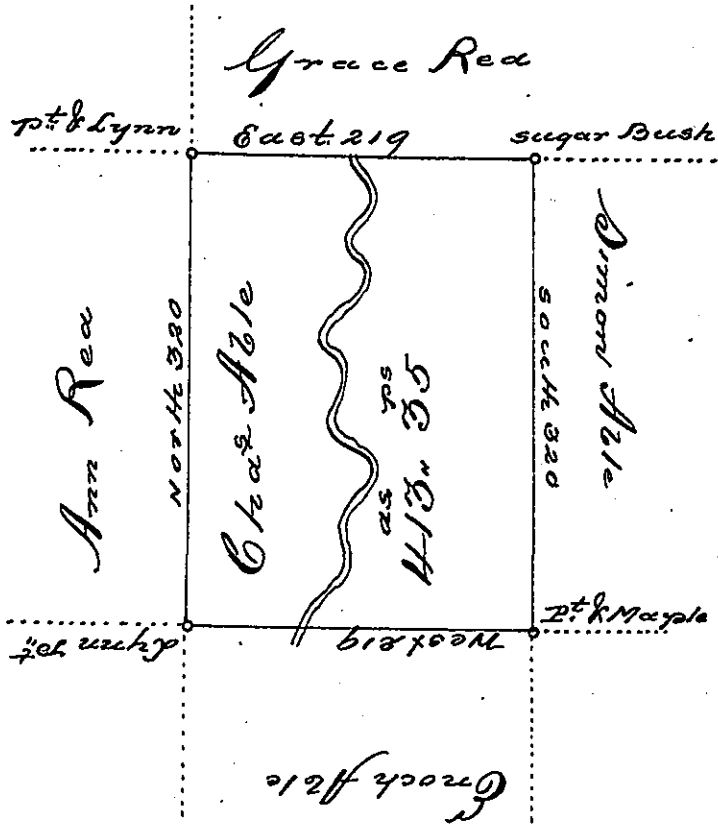 Grace Rea
Pt & Lynn
East. 219
sugar Bush
Ann Rea
North 320
Chas Able
as ps
413 " 35
South 320
Simon Able
Lynn Pt
West 219
Pt & Maple
Enoch Able